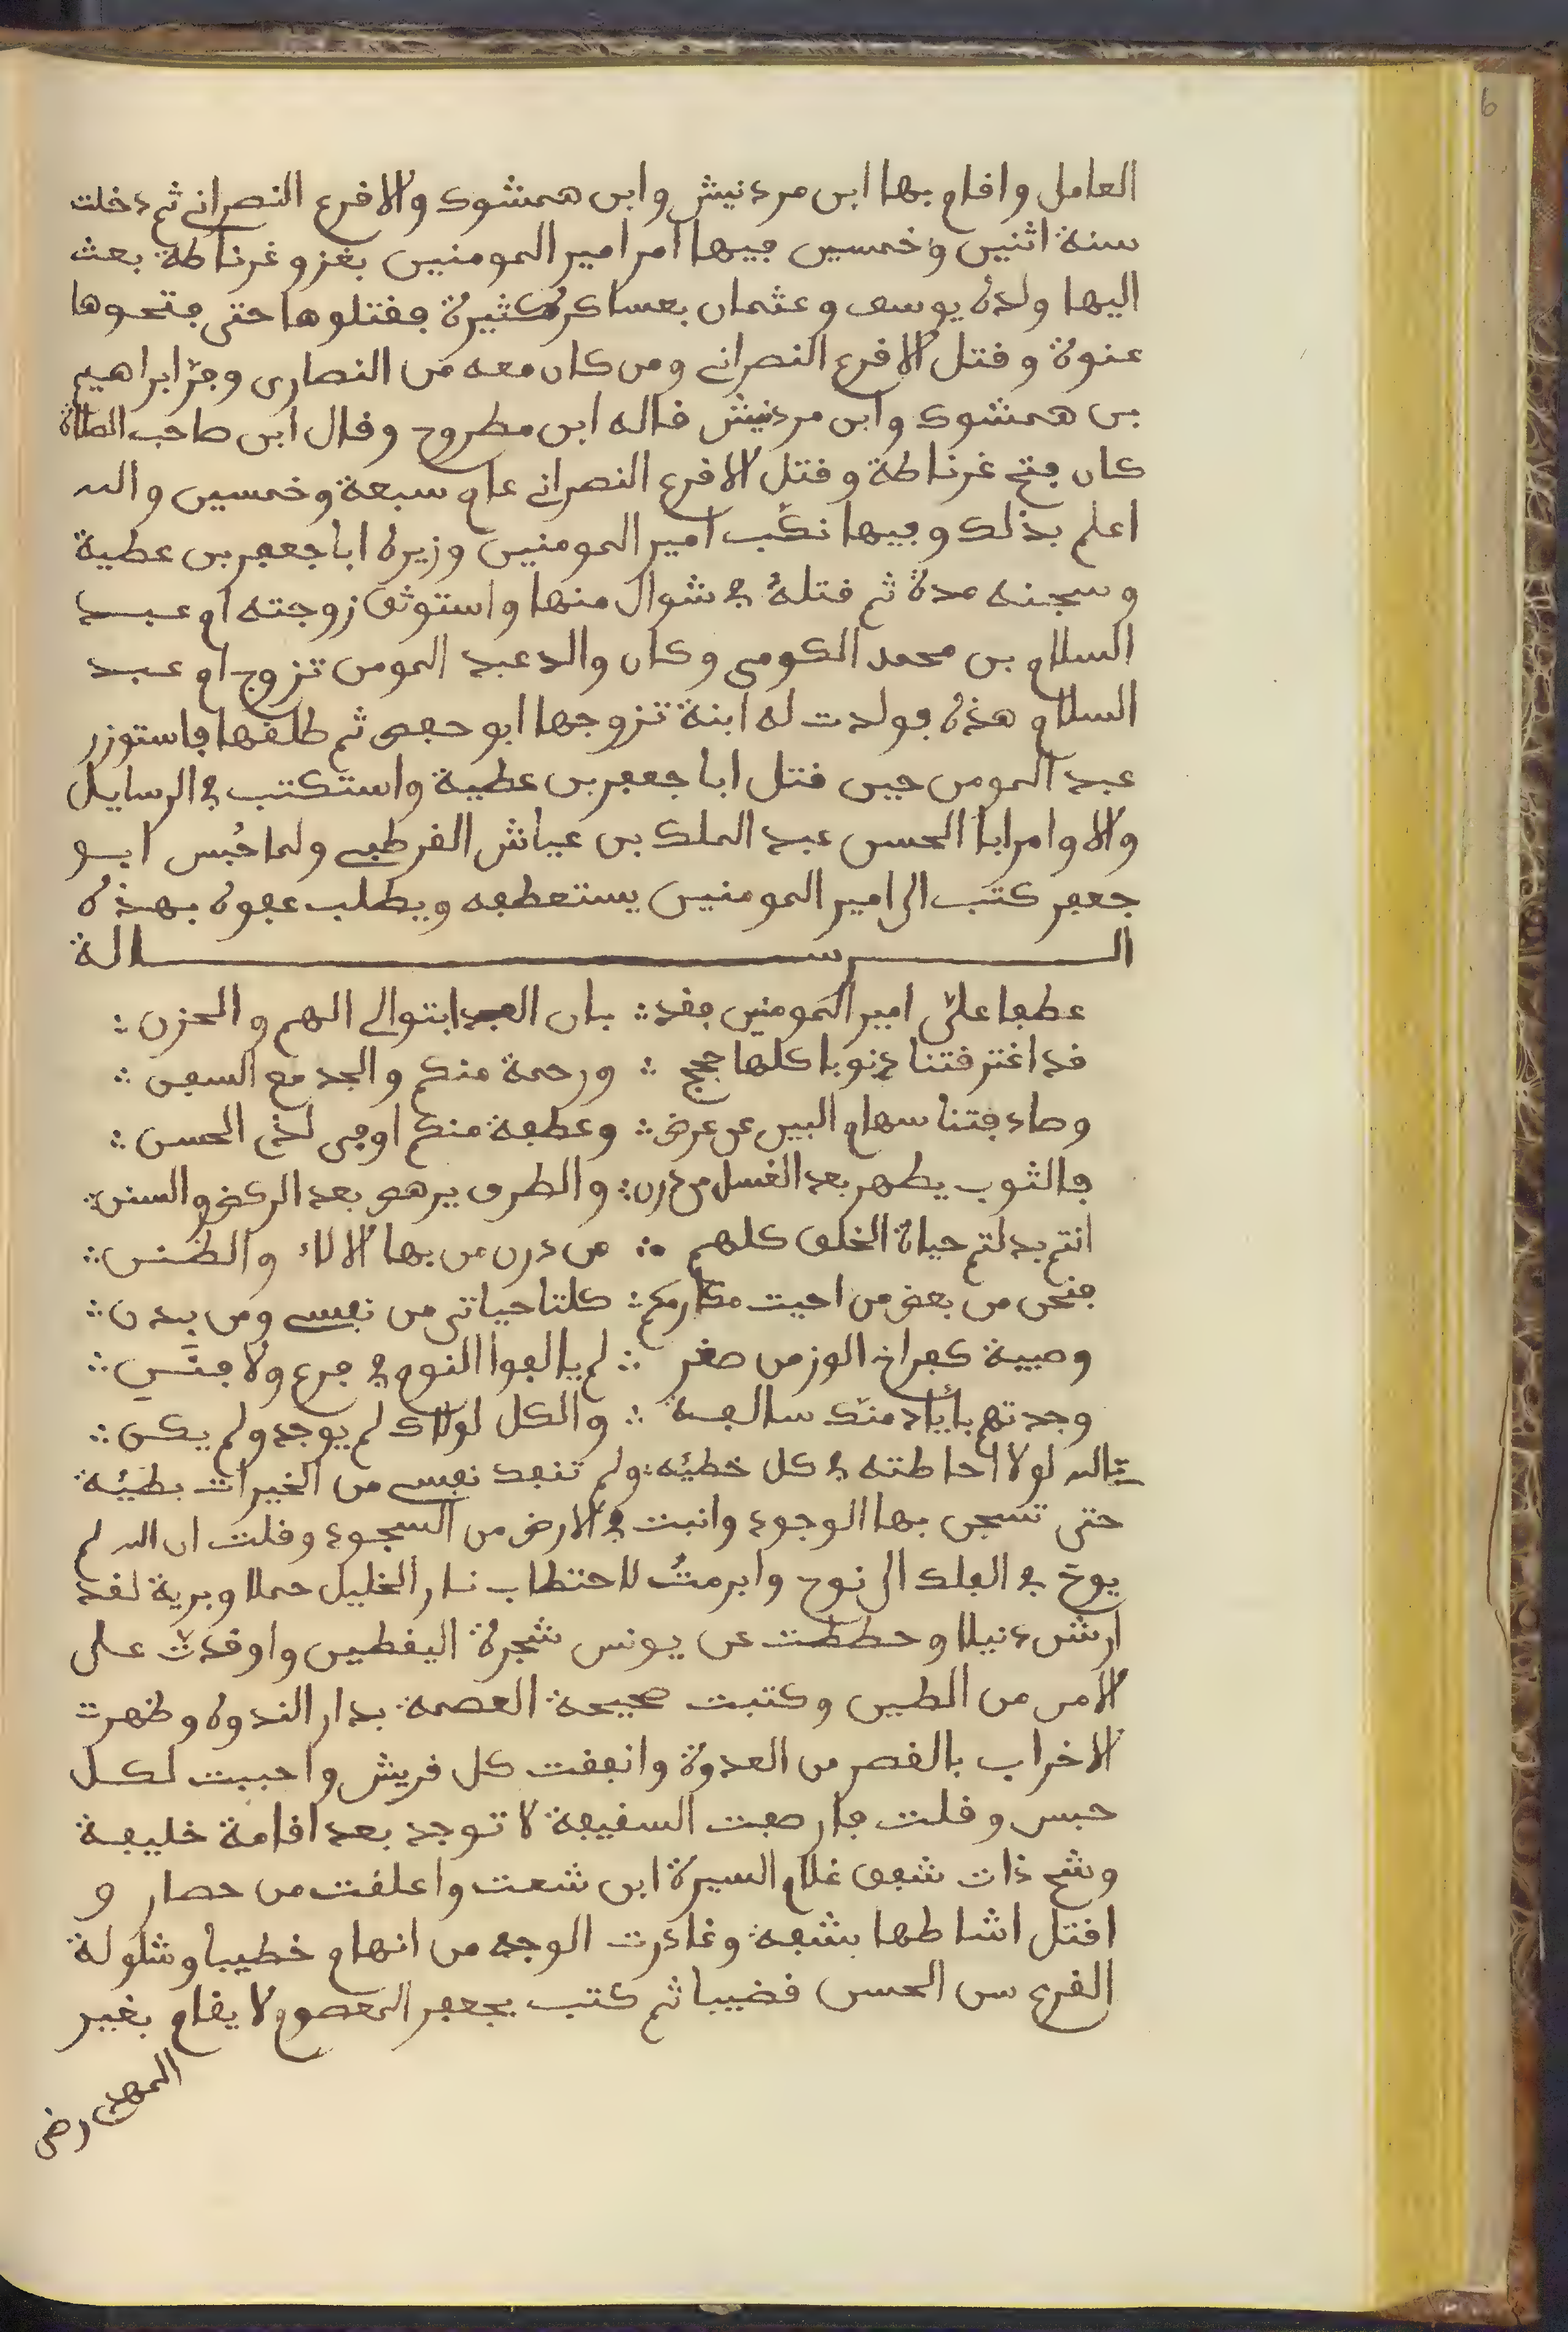 6
العامل واقام بها ابن مردنيش وابن همشوك والاقرع النصراني ثم دخلت
سنة اثنين وخمسين فيها امر امير المومنين بغزو غرناطة بعث
اليها ولده يوسف وعثمان بعساكر كثيرة فقتلوها حتى فتحوها
عنوة وقتل الاقرع النصراني ومن كان معه من النصارى وفرّ ابراهيم
بن همشوك وابن مردنيش قاله ابن مطروح وقال ابن صاحب الصلاة
كان فتح غرناطة وقتل الاقرع النصراني عام سبعة وخمسين والله
اعلم بذلك وفيها نكّب امير المومنين وزيره ابا جعفر بن عطية
وسجنه مدة ثم قتلهُ في شوال منها واستوثق زوجته ام عبد
السلام بن محمد الكومي وكان والد عبد المومن تزوج ام عبد
السلام هذه فولدت له ابنة تزوجها ابو حفص ثم طلقها فاستوزر
عبد المومن حين قتل ابا جعفر بن عطية واستكتب في الرسايل
والاوامر ابا الحسن عبد الملك بن عياش القرطبي ولما حُبس ابو
جعفر كتب الى امير المومنين يستعطفه ويطلب عفوه بهذه
الرسالة
عطفا عليّ امير المومنين فقد ∴ بان العبد ابتوالي الهم والحزن ∴
قد اغترقتنا ذنوبا كلها حجج ∴ ورحمة منكم والجد مع السفن ∴
وصادفتنا سهام البين عن عرض ∴ وعطفة منكم اوفى لذي الحسن ∴
فالثوب يطهر بعد الغسل من درن ∴ والطرف يرهق بعد الركض والسنن ∴
انتم بدلتم حياة الخلق كلهم ∴ من درن من بها الالاء والظنن ∴
فنحن من بعض من احيت مكارمكم ∴ كلتا حياتي من نفسي ومن بدن ∴
وصبية كفراخ الوز من صغر ∴ لم يالفوا النوم في فرع ولا فنَنٍ ∴
وجدتهم بأياد منك سالفة ∴ والكل لولاك لم يوجد ولم يكن ∴
تالله لولا احاطته في كل خطيئه ولم تنفد نفسي من الخيرات بطيئة
حتى تسجن بها الوجود وانبت في الارض من السجود وقلت ان الله لم
يوح في الفلك الى نوح وابرمتُ لاحتطاب نار الخليل حملا وبرية لقد
ارش دنيلا وحططت عن يونس شجرة اليقطين واوقدت على
الامر من الطين وكتبت صحيفة العصمة بدار الندوه وظهرت
الاخراب بالقصر من العدوة وانفقت كل قريش واحببت لكل
حبس وقلت فارصعت السفيفة لا توجد بعد اقامة خليفة
وشح ذات شفق غلام السيرة ابن شعت واعلقت من حصار و
اقتل اشاطها بشعة وغادرت الوجه من انهام خطيبا وشلولة
القرع سن الحسن قضيبا ثم كتب بجعفر المعصوم لا يقام بغير
المهدي رضي